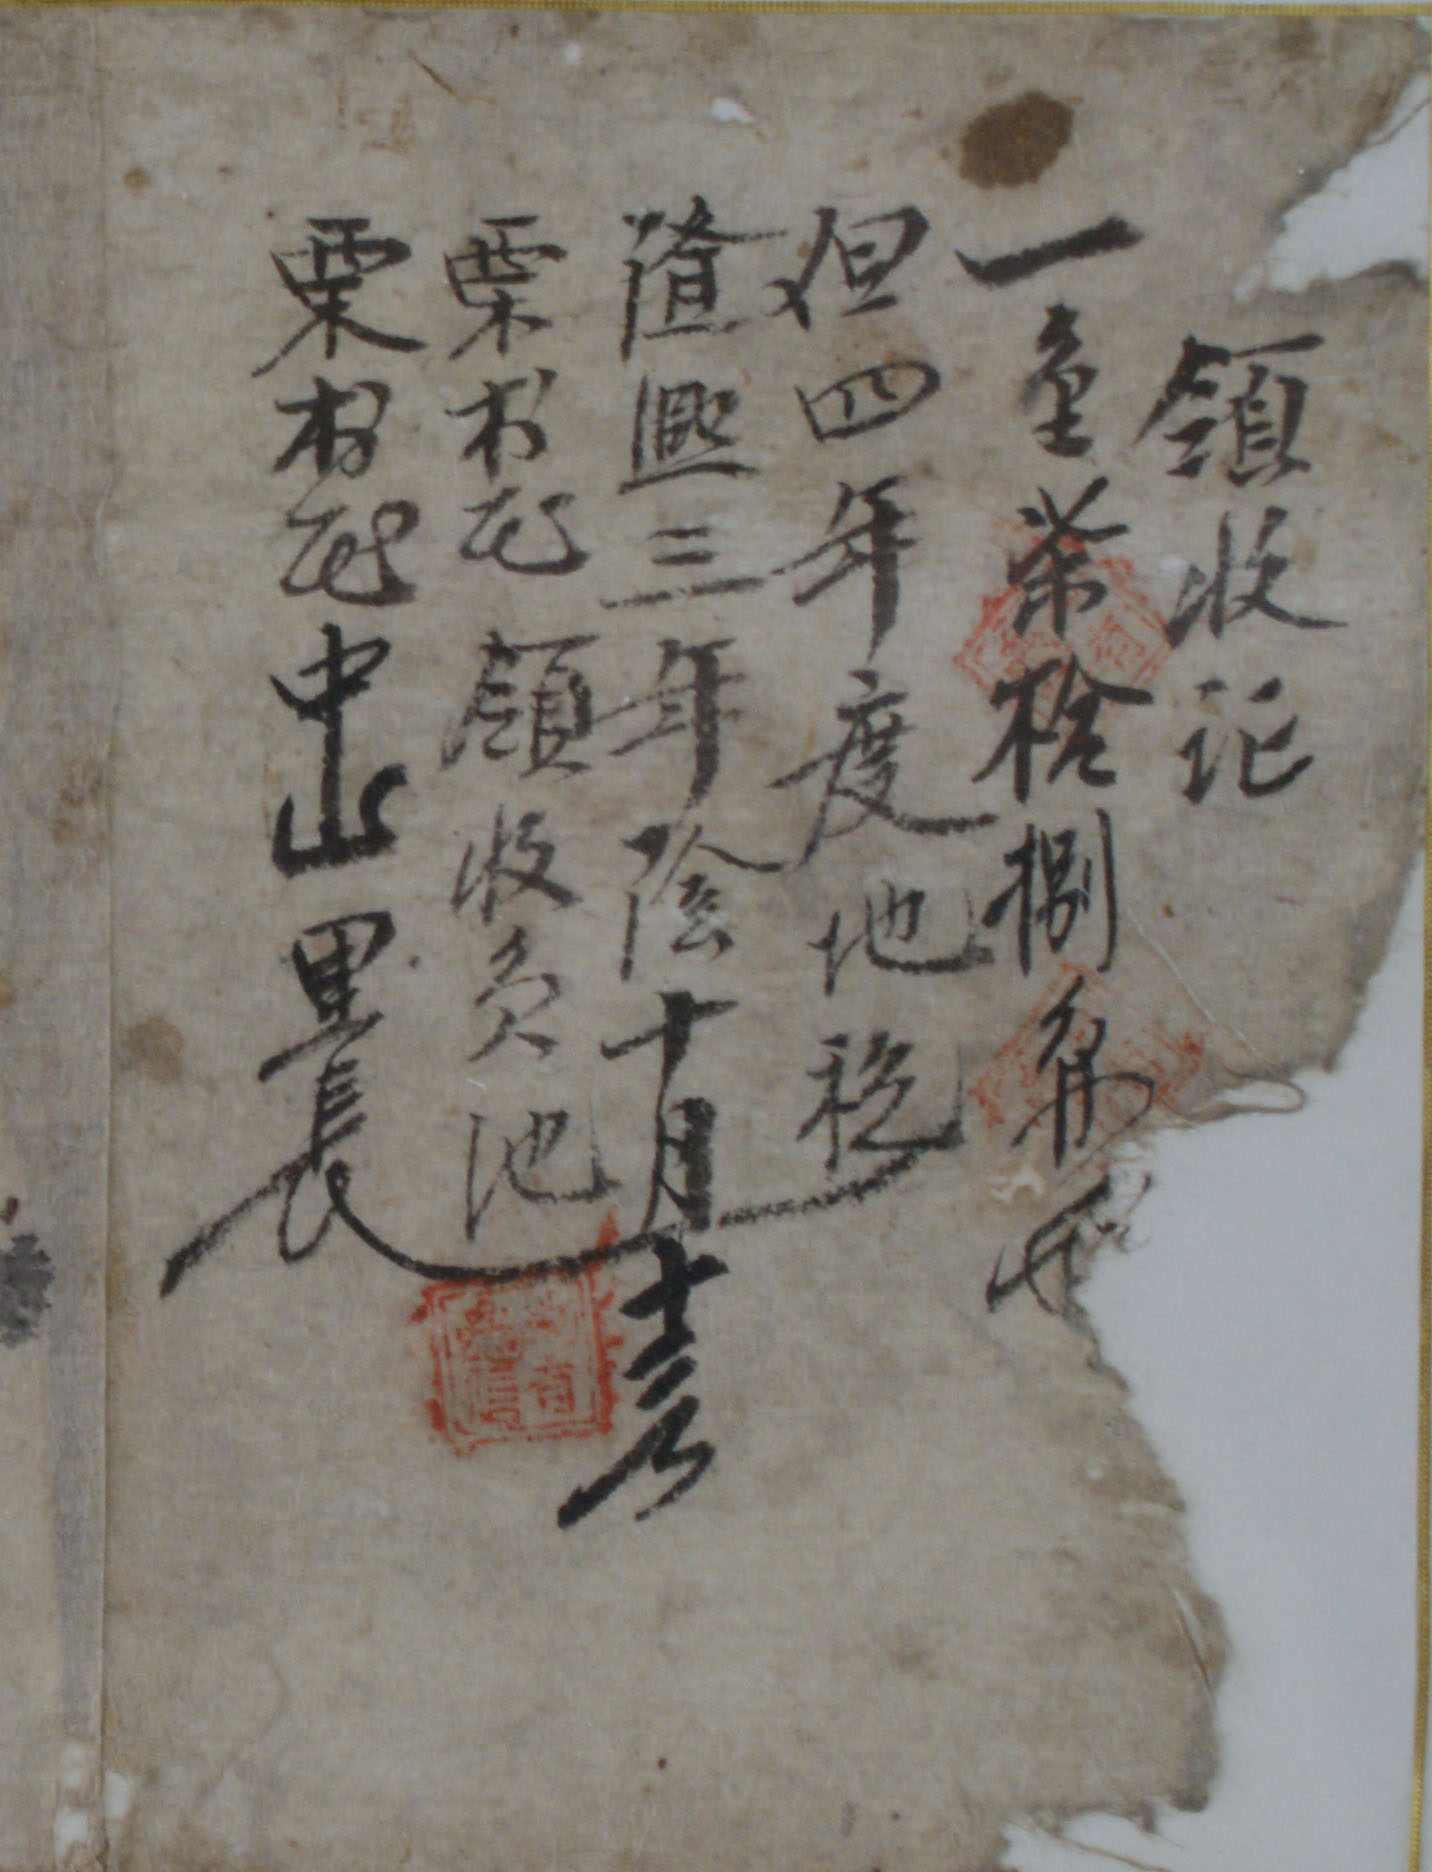 領收記
一金柒拾捌兩
但四年度地稅
隆熙三年陰十月十三日
栗村面 領收員 池
栗村面中山里長